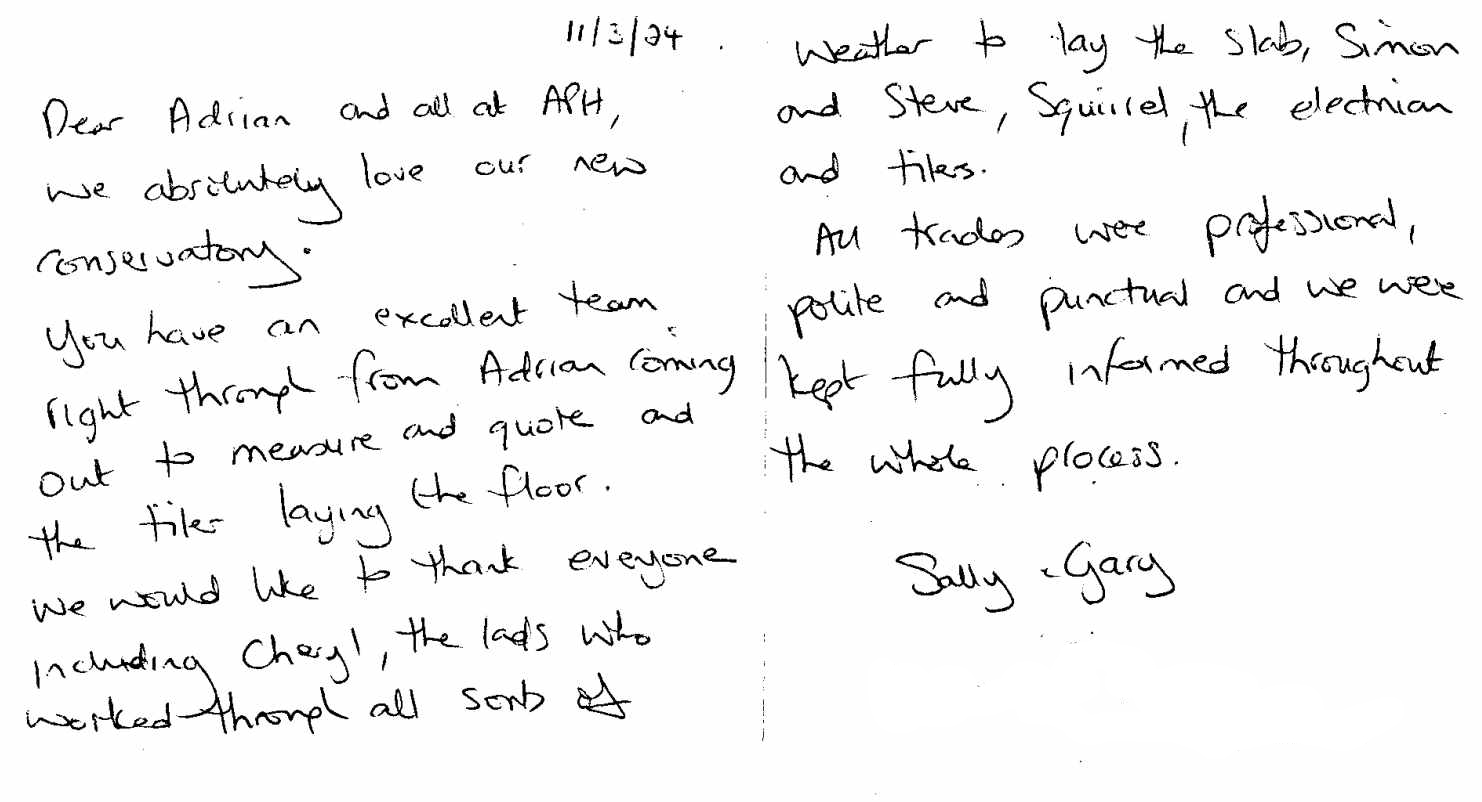 11/3/24.
Dear Adrian and all at APH,
we absolutely love our new
conservatory.
You have an excellent team
right through from Adrian coming
out to measure and quote and
the tiler laying the floor.
We would like to thank everyone
including Cheryl, the lads who
worked through all sorts of
weather to lay the slab, Simon
and Steve, Squirrel, the electrician
and tilers.
All trades were professional,
polite and punctual and we were
kept fully informed throughout
the whole process.
Sally & Gary